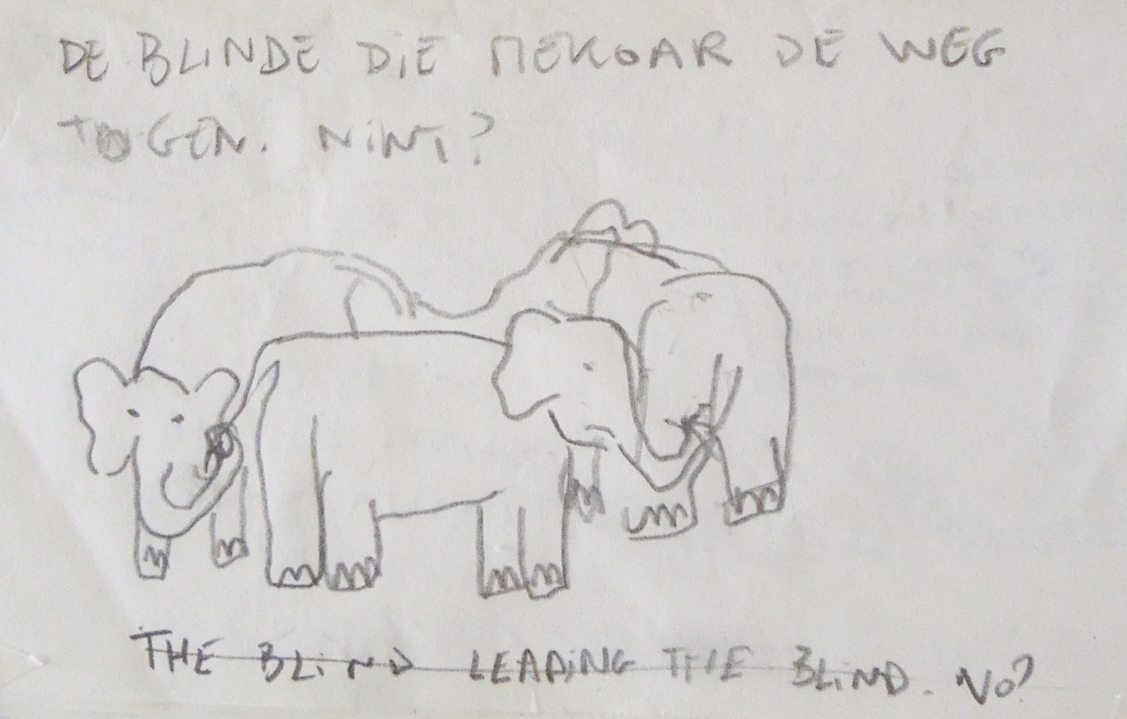 DE BLINDE DIE MEKOAR DE WEG
TOGEN. NINT?
THE BLIND LEADING THE BLIND. NO?